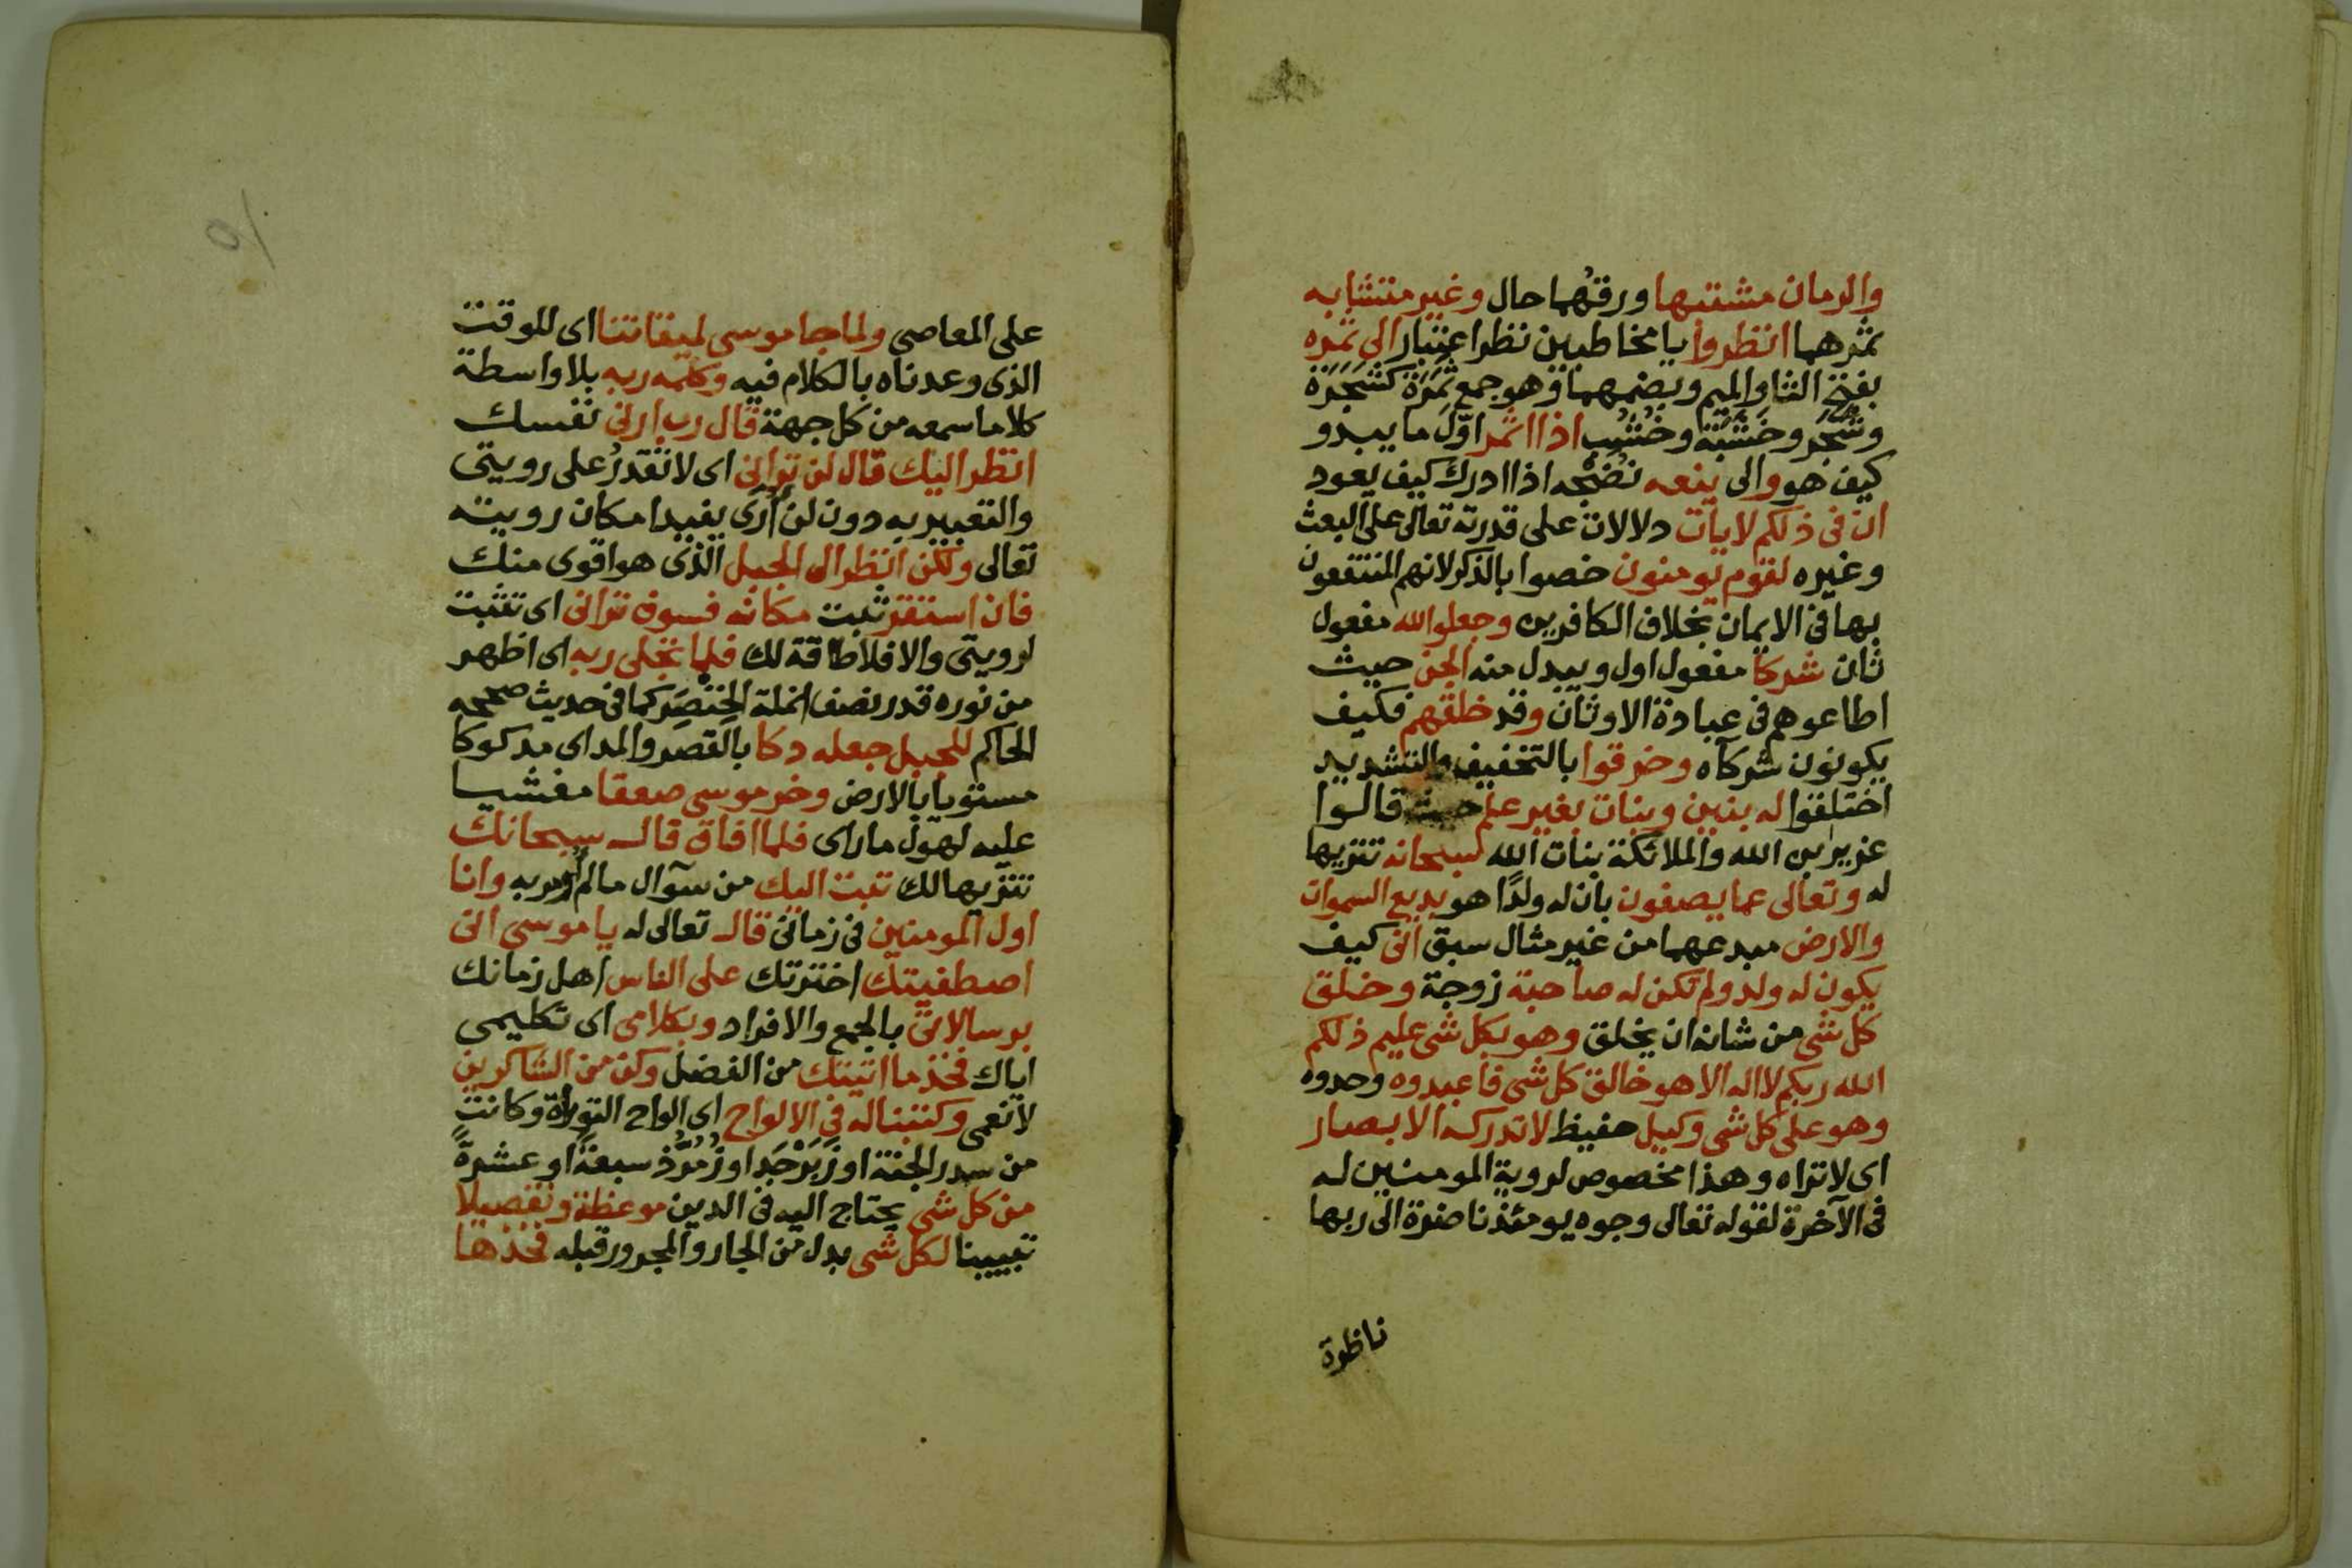 والرمان مشتبها ورقهما حال وغير متشابه
ثمرهما انظروا يا مخاطبين نظر اعتبار الى ثمره
بفتح الثا والميم وبضمهما وهو جمع ثَمَرَة كشَجَرَة
وشَجَر وخَشَبَة وخُشُب اذا اثمر اوّل ما يبدو
كيف هو والى ينعه نُضْجه اذا ادرك كيف يعود
ان فى ذلكم لايات دلالات على قدرته تعالى على البعث
وغيره لقوم يومنون خصوا بالذكر لانهم المنتفعون
بها فى الايمان بخلاف الكافرين وجعلوا لله مفعول
ثان شركا مفعول اول ويبدل منه الجن حيث
اطاعوهم فى عبادة الاوثان وقد خلقهم فكيف
يكونون شركآه وخرقوا بالتخفيف والتشديد
اختلقوا له بنين وبنات بغير علم حيث قالوا
عزير بن الله والملائكة بنات الله سبحانه تنزيها
له وتعالى عما يصفون بان له ولدًا هو بديع السموات
والارض مبدعهما من غير مثال سبق انى كيف
يكون له ولد ولم تكن له صاحبة زوجة وخلق
كل شى من شانه ان يخلق وهو بكل شى عليم ذلكم
الله ربكم لا اله الا هو خالق كل شى فاعبدوه وحدوه
وهو على كل شى وكيل حفيظ لا تدركه الابصار
اى لا تراه وهذا مخصوص لروية المومنين له
فى الآخرة لقوله تعالى وجوه يومئذ ناضرة الى ربها
ناظرة
١٥
على المعاصى ولما جا موسى لميقاتنا اى للوقت
الذى وعدناه بالكلام فيه وكلمه ربه بلا واسطة
كلاما سمعه من كل جهة قال رب ارنى نفسك
انظر اليك قال لن ترانى اى لا تقدرُ على رويتى
والتعبير به دون لن أُرَى يفيد امكان رويته
تعالى ولكن انظر الى الجبل الذى هو اقوى منك
فان استقر ثبت مكانه فسوف ترانى اى تثبت
لرويتى والا فلا طاقة لك فلما تجلى ربه اى اظهر
من نوره قدر نصف انملة الخِنْصَر كما فى حديث صححه
الحاكم للجبل جعله دكا بالقصر والمد اى مدكوكا
مستويا بالارض وخر موسى صعقا مغشيا
عليه لهول ما راى فلما افاق قال سبحانك
تنزيها لك تبت اليك من سوآل ما لم أومر به وانا
اول المومنين فى زمانى قال تعالى له يا موسى انى
اصطفيتك اخترتك على الناس اهل زمانك
برسالاتى بالجمع والافراد وبكلامى اى تكليمى
اياك فخذ ما اتيتك من الفضل وكن من الشاكرين
لانعمى وكتبنا له فى الالواح اى الواح التوراة وكانت
من سدر الجنة او زَبَرْجَد او زُمُرُّذ سبعةً او عشرةً
من كل شى يحتاج اليه فى الدين موعظة وتفصيلا
تبيينا لكل شى بدل من الجار والمجرور قبله فخذها